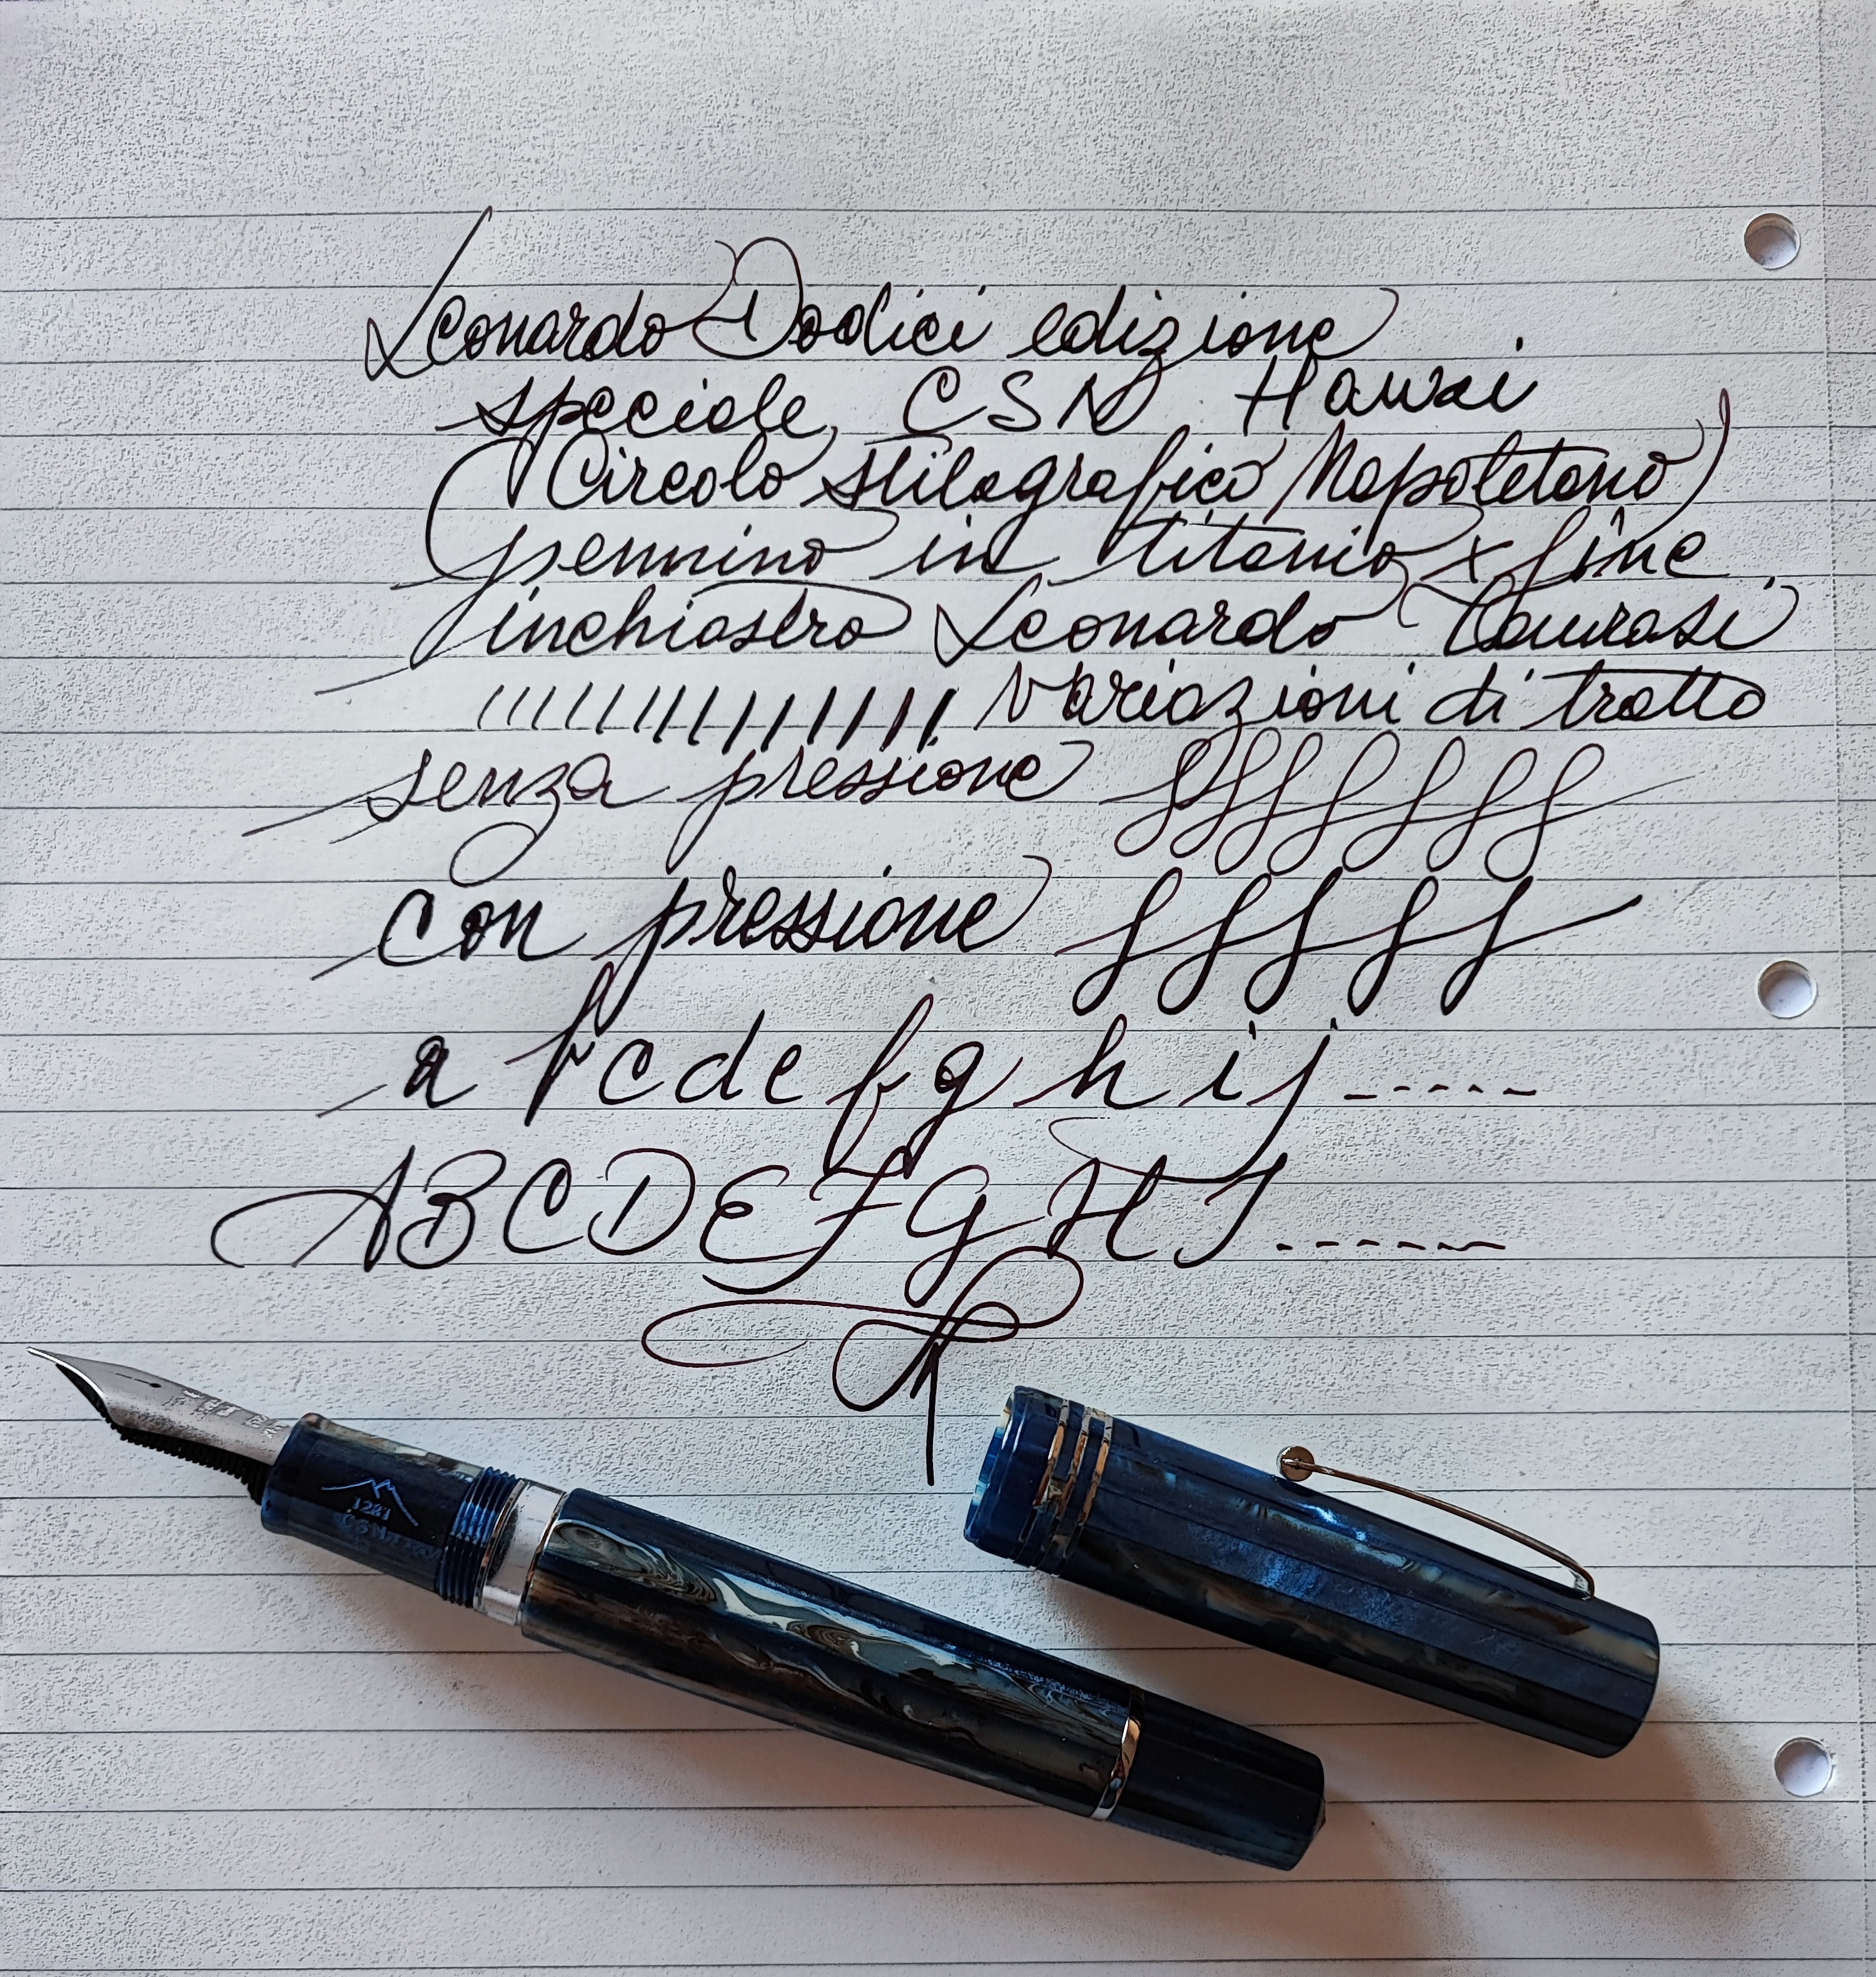 Leonardo Dodici edizione
speciale CSN Hawai
(Circolo stilografico Napoletano)
pennino in titanio x fine
inchiostro Leonardo Taurasi
variazioni di tratto
senza pressione
con pressione
a b c d e f g h i j -----
A B C D E F G H I ------
CSN